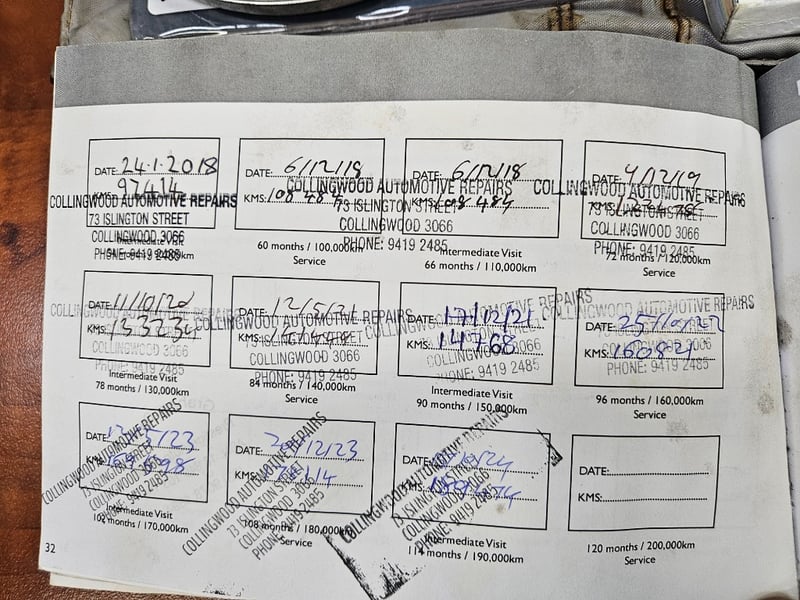 DATE: 24·1·2018
97414
COLLINGWOOD AUTOMOTIVE REPAIRS
73 ISLINGTON STREET
COLLINGWOOD 3066
PHONE: 9419 2485
DATE: 6/12/18
KMS: 108 484
60 months / 100,000km
Service
DATE: 6/12/18
KMS: 108 484
COLLINGWOOD AUTOMOTIVE REPAIRS
73 ISLINGTON STREET
COLLINGWOOD 3066
PHONE: 9419 2485
Intermediate Visit
66 months / 110,000km
DATE: 4/12/19
KMS:
COLLINGWOOD AUTOMOTIVE REPAIRS
73 ISLINGTON STREET
COLLINGWOOD 3066
PHONE: 9419 2485
72 months / 120,000km
Service
DATE: 11/10/20
KMS: 133234
COLLINGWOOD AUTOMOTIVE REPAIRS
COLLINGWOOD 3066
PHONE: 9419 2485
Intermediate Visit
78 months / 130,000km
DATE: 12/5/21
KMS:
COLLINGWOOD AUTOMOTIVE REPAIRS
COLLINGWOOD 3066
PHONE: 9419 2485
84 months / 140,000km
Service
DATE: 17/12/21
KMS:
COLLINGWOOD 3066
PHONE: 9419 2485
Intermediate Visit
90 months / 150,000km
DATE: 25/10/22
KMS:
AUTOMOTIVE REPAIRS
COLLINGWOOD 3066
PHONE: 9419 2485
96 months / 160,000km
Service
DATE:
KMS:
COLLINGWOOD AUTOMOTIVE REPAIRS
73 ISLINGTON STREET
COLLINGWOOD 3066
PHONE: 9419 2485
Intermediate Visit
102 months / 170,000km
DATE: 20/12/23
KMS:
COLLINGWOOD AUTOMOTIVE REPAIRS
73 ISLINGTON STREET
COLLINGWOOD 3066
PHONE: 9419 2485
108 months / 180,000km
Service
DATE:
KMS:
COLLINGWOOD AUTOMOTIVE REPAIRS
73 ISLINGTON STREET
COLLINGWOOD 3066
PHONE: 9419 2485
Intermediate Visit
114 months / 190,000km
DATE:
KMS:
120 months / 200,000km
Service
32